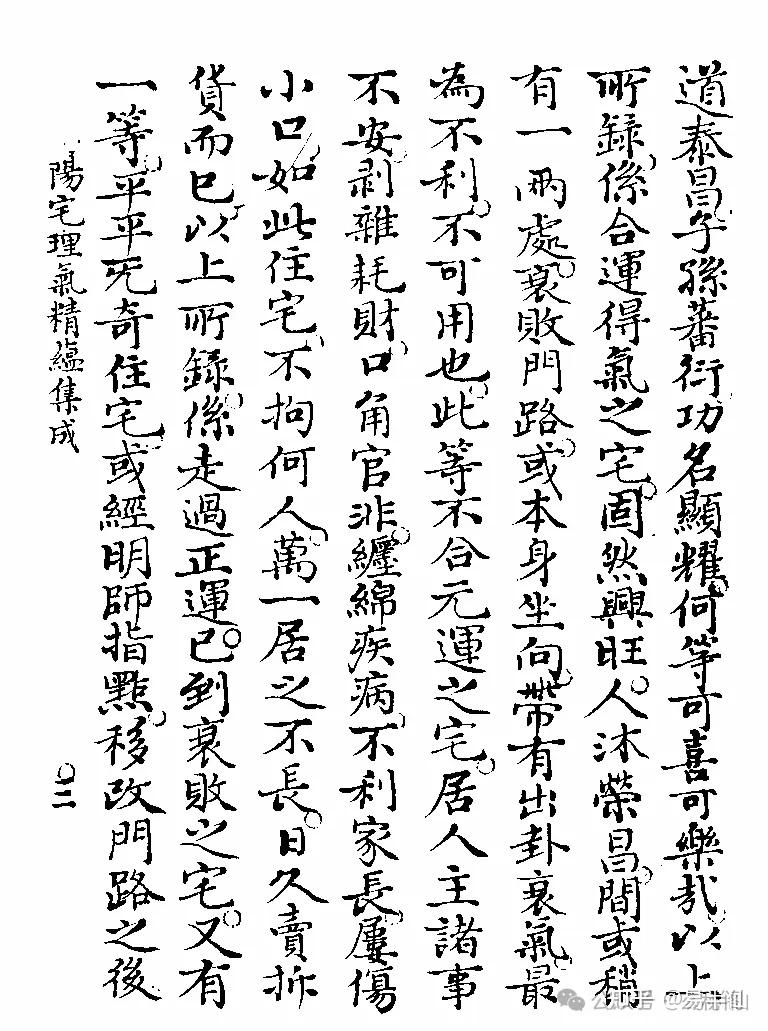 道泰昌。子孫蕃衍功名顯耀。何等可喜可樂哉。以上
所録。係合運得氣之宅。固然興旺。人沐榮昌。間或稍
有一兩處。衰敗門路。或本身坐向。帶有出卦衰氣。最
為不利。不可用也。此等不合元運之宅。居人主諸事
不安。剥雜耗財。口角官非。纏綿疾病。不利家長。屢傷
小口。如此住宅。不拘何人。萬一居之不長。日久賣拆
貨而已。以上所録。係走過正運。已到衰敗之宅。又有
一等。平平旡奇住宅。或經明師指點。移改門路之後
陽宅理氣精藴集成
〇二
公众号